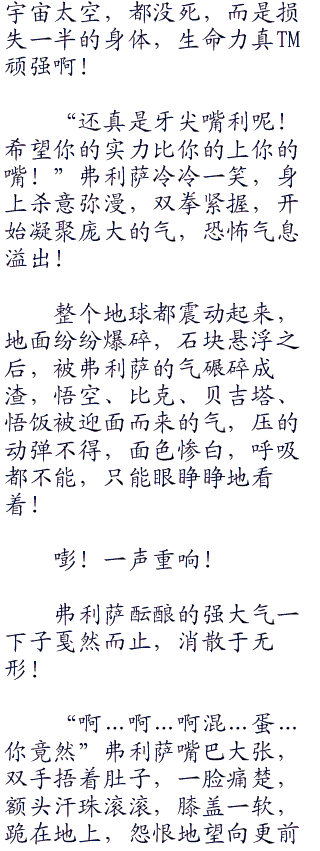 宇宙太空，都没死，而是损
失一半的身体，生命力真TM
顽强啊！
“还真是牙尖嘴利呢！
希望你的实力比你的上你的
嘴！”弗利萨冷冷一笑，身
上杀意弥漫，双拳紧握，开
始凝聚庞大的气，恐怖气息
溢出！
整个地球都震动起来，
地面纷纷爆碎，石块悬浮之
后，被弗利萨的气碾碎成
渣，悟空、比克、贝吉塔、
悟饭被迎面而来的气，压的
动弹不得，面色惨白，呼吸
都不能，只能眼睁睁地看
着！
嘭！一声重响！
弗利萨酝酿的强大气一
下子戛然而止，消散于无
形！
“啊…啊…啊混…蛋…
你竟然”弗利萨嘴巴大张，
双手捂着肚子，一脸痛楚，
额头汗珠滚滚，膝盖一软，
跪在地上，怨恨地望向更前